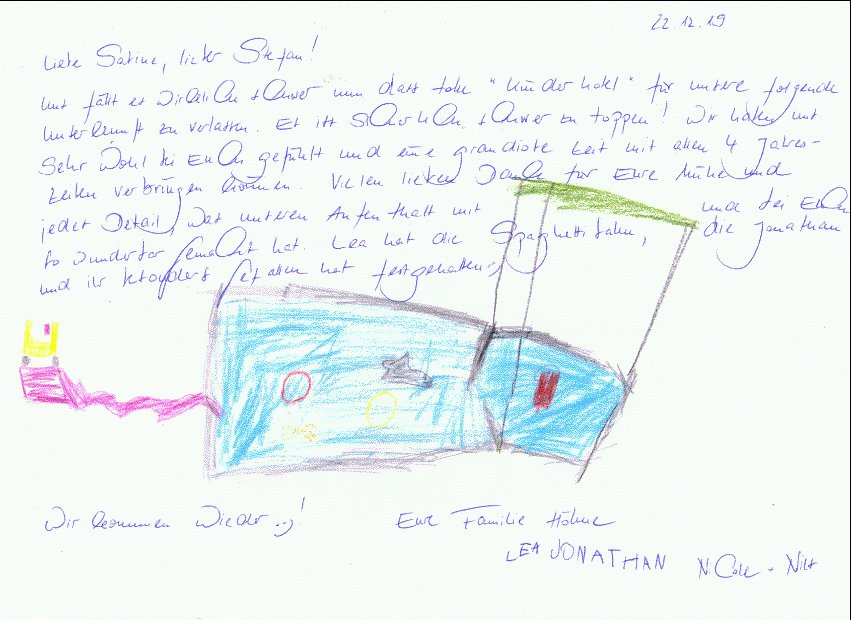 22.12.19
Liebe Sabine, lieber Stefan!
uns fällt es wirklich schwer nun das tolle "Kinderhotel" für unsere folgende
Unterkunft zu verlassen. Es ist sicherlich schwer zu toppen! Wir haben uns
sehr wohl bei Euch gefühlt und eine grandiose Zeit mit allen 4 Jahres-
zeiten verbringen können. Vielen lieben Dank für Eure Mühe und
jedes Detail, was unseren Aufenthalt mit und bei Euch
so wunderbar gemacht hat. Lea hat die Spaghettibahn, die Jonathan
und ihr besonders gefallen hat festgehalten ;)
Wir kommen wieder ;-)!
Eure Familie Höhne
LEA JONATHAN Nicole + Nils